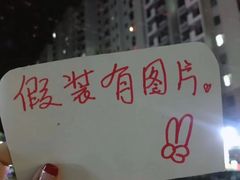 假装有图片。